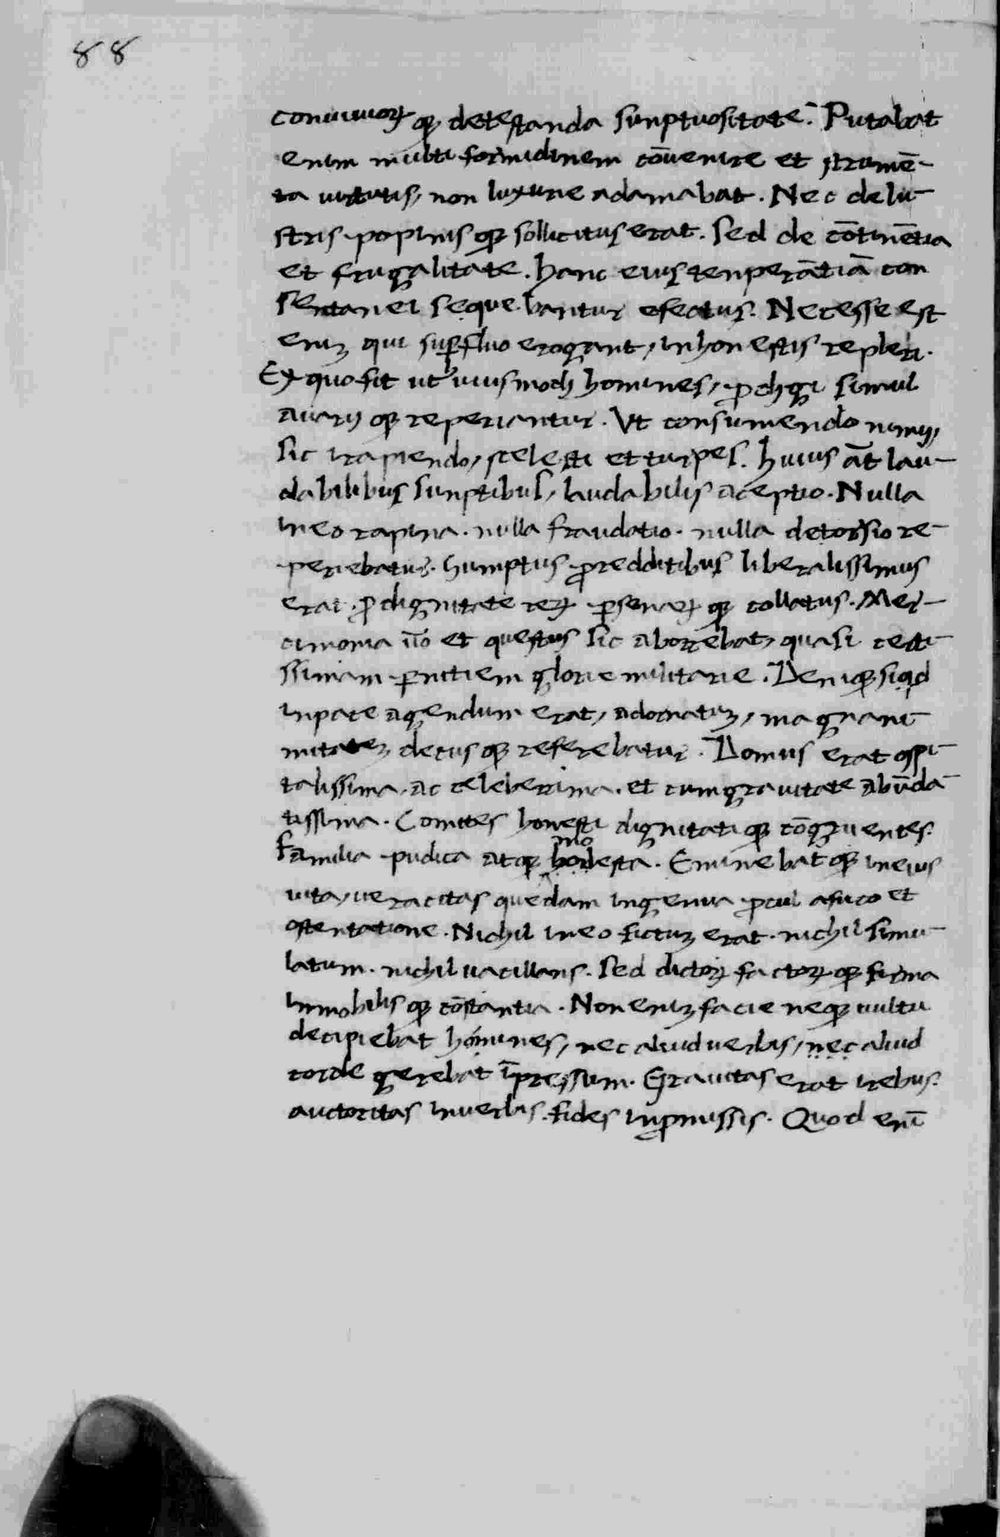 88
conuiuioꝝ qꝫ detestanda sunptuositate. Putabat
enim multi formidinem cōvenire et istrumē-
ta uirtutis, non luxurie adamabat. Nec de lu-
stris popinis qꝫ sollicitus erat. Sed de cōtinētia
et frugalitate. hanc eius tenperātiā con
sentanei sequebantur efectus. Necesse est
eniꝫ qui suꝑfluo erogant, inhonestis repleri.
Ex quo fit ut uiusmodi homines, ꝓdigi simul
auarij qꝫ reperiantur. Vt consumendo nimij,
sic irapiendo, scelesti et turpes. huius āt lau-
dabilibus sunptibus, laudabilis aceptio. Nulla
ineo rapina. nulla fraudatio. nulla detorsio re-
periebatur. Sumptus ꝓ redditibus liberalissimus
erat. ꝓ dignitate reꝝ ꝑsonaꝝ qꝫ collatus. Mer-
cimonia ūo et questus sic aborrebat, quasi certi-
ssimam ꝑnitiem glorie militarie. Deniqꝫ siqid
inpace agendum erat, adornatuꝫ, magnani-
mitateꝫ decus qꝫ referebatur. Domus erat ospi-
talissima. ac celeberima. et cum grauitate abūda-
tissima. Comites honesti dignitati qꝫ cōgruentes.
Familia pudica atqꝫ modesta. Eminebat qꝫ ineius
uita, ueracitas quedam ingenua ꝓcul afuco et
ostentatione. Nichil ineo fictuꝫ erat. nichil simu-
latum. nichil uacillans. Sed dictoꝝ factoꝝ qꝫ firma
inmobilis qꝫ cōstantia. Non eniꝫ facie neqꝫ uultu
decipiebat homines, nec aliud uerbis, nec aliud
corde gerebat īpressum. Grauitas erat irebus.
auctoritas inuerbis. fides inꝓmissis. Quod enī